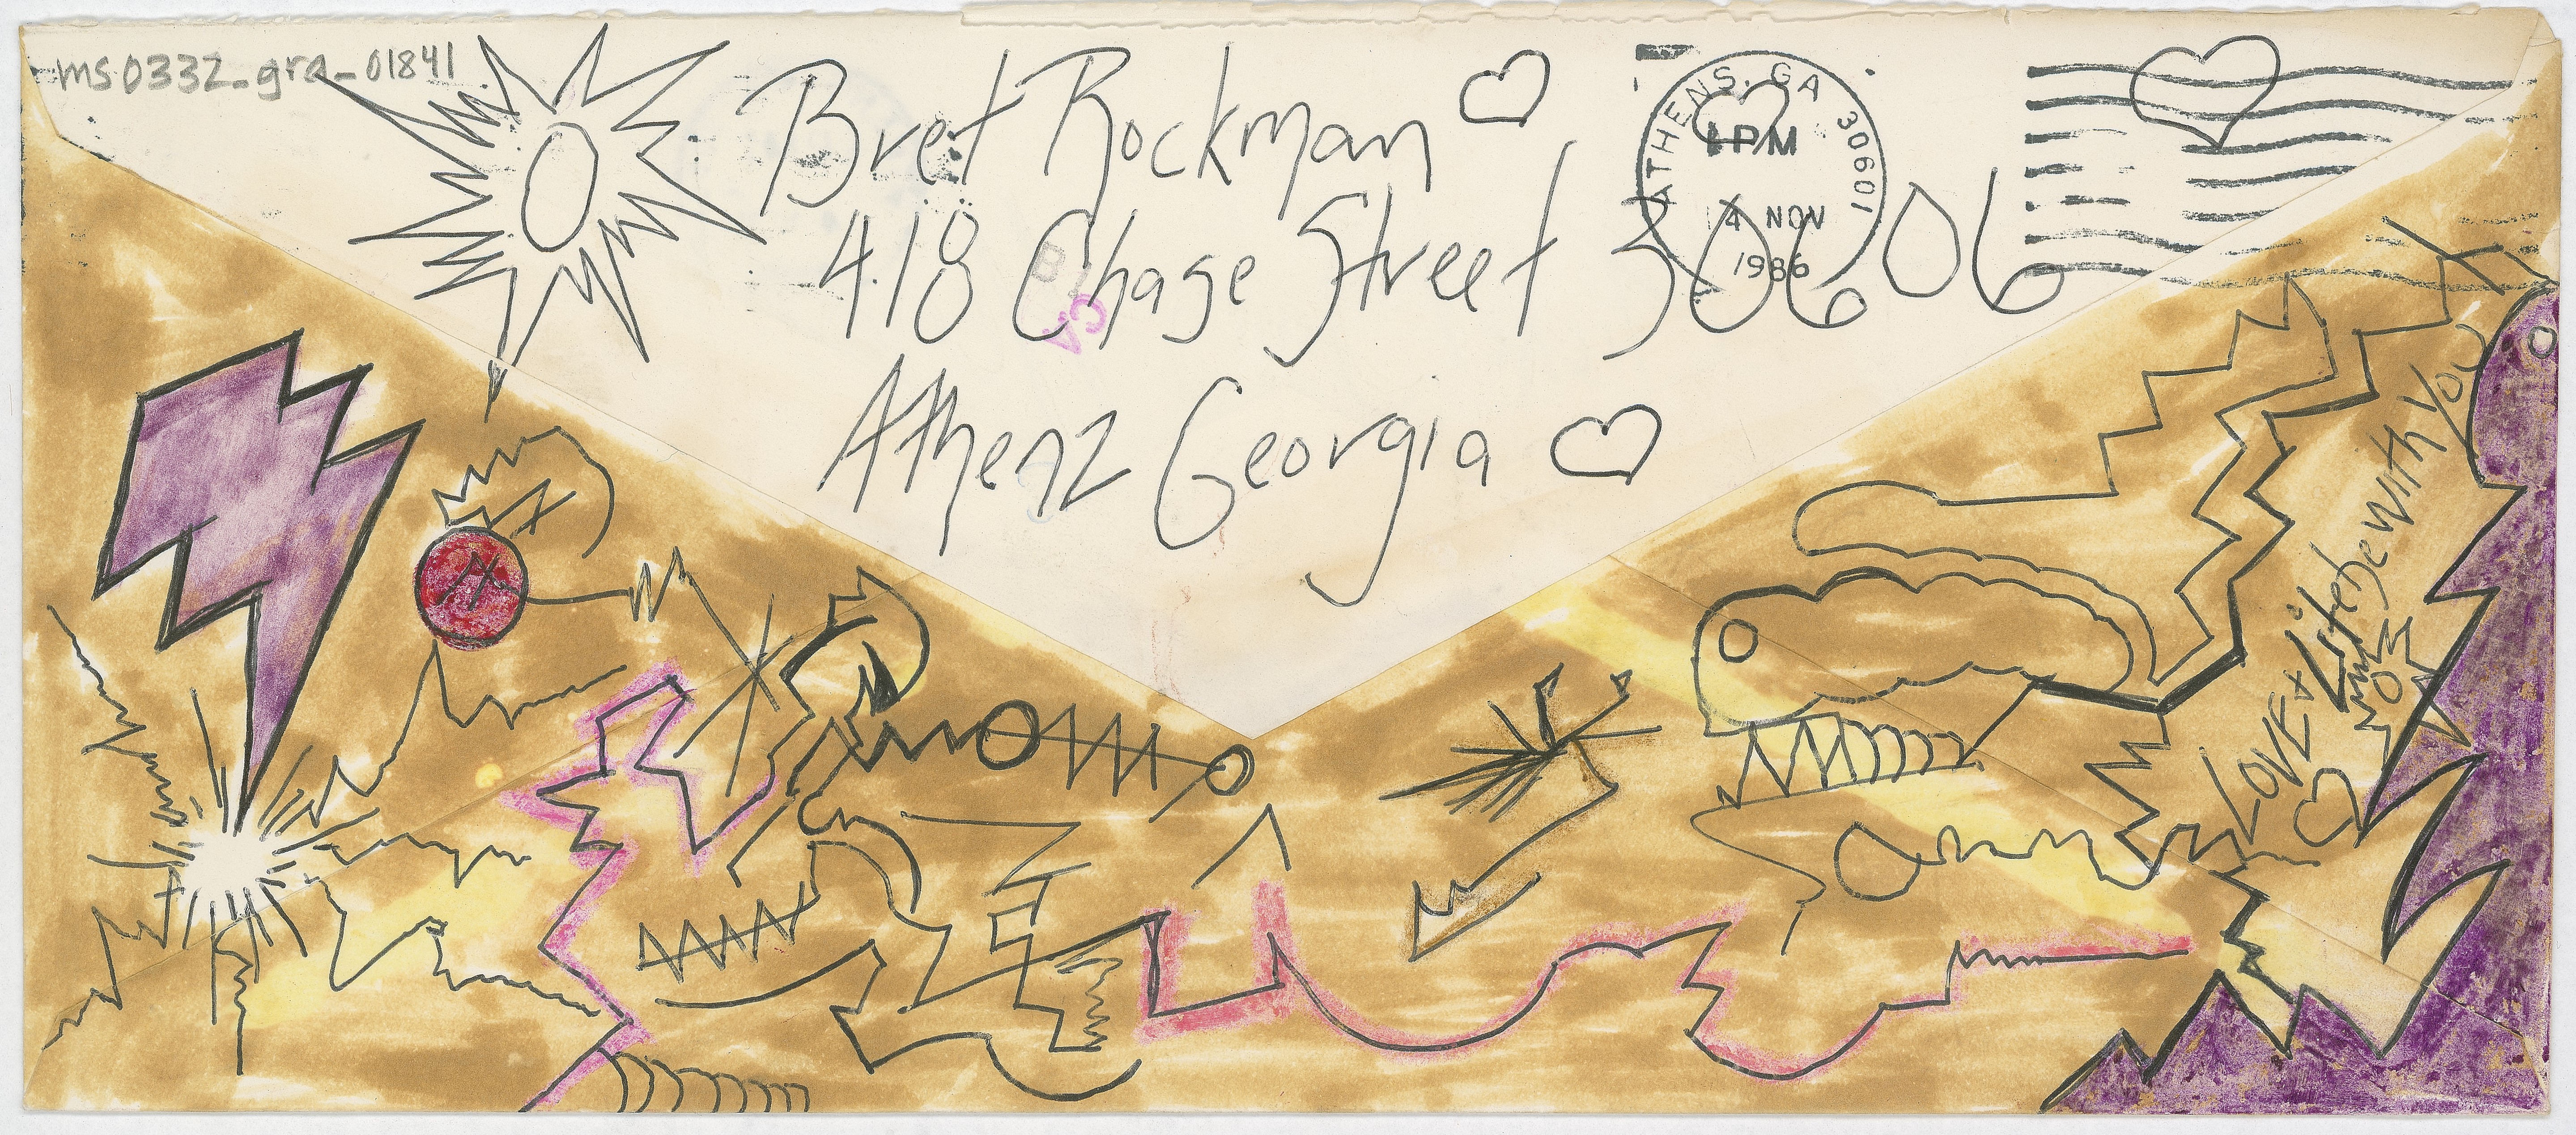 ms0332_gra_01841
Bret Rockman
418 Chase Street 30606
Athenz Georgia
ATHENS, GA 30601
PM
14 NOV
1986
LOVE + Lite be with you